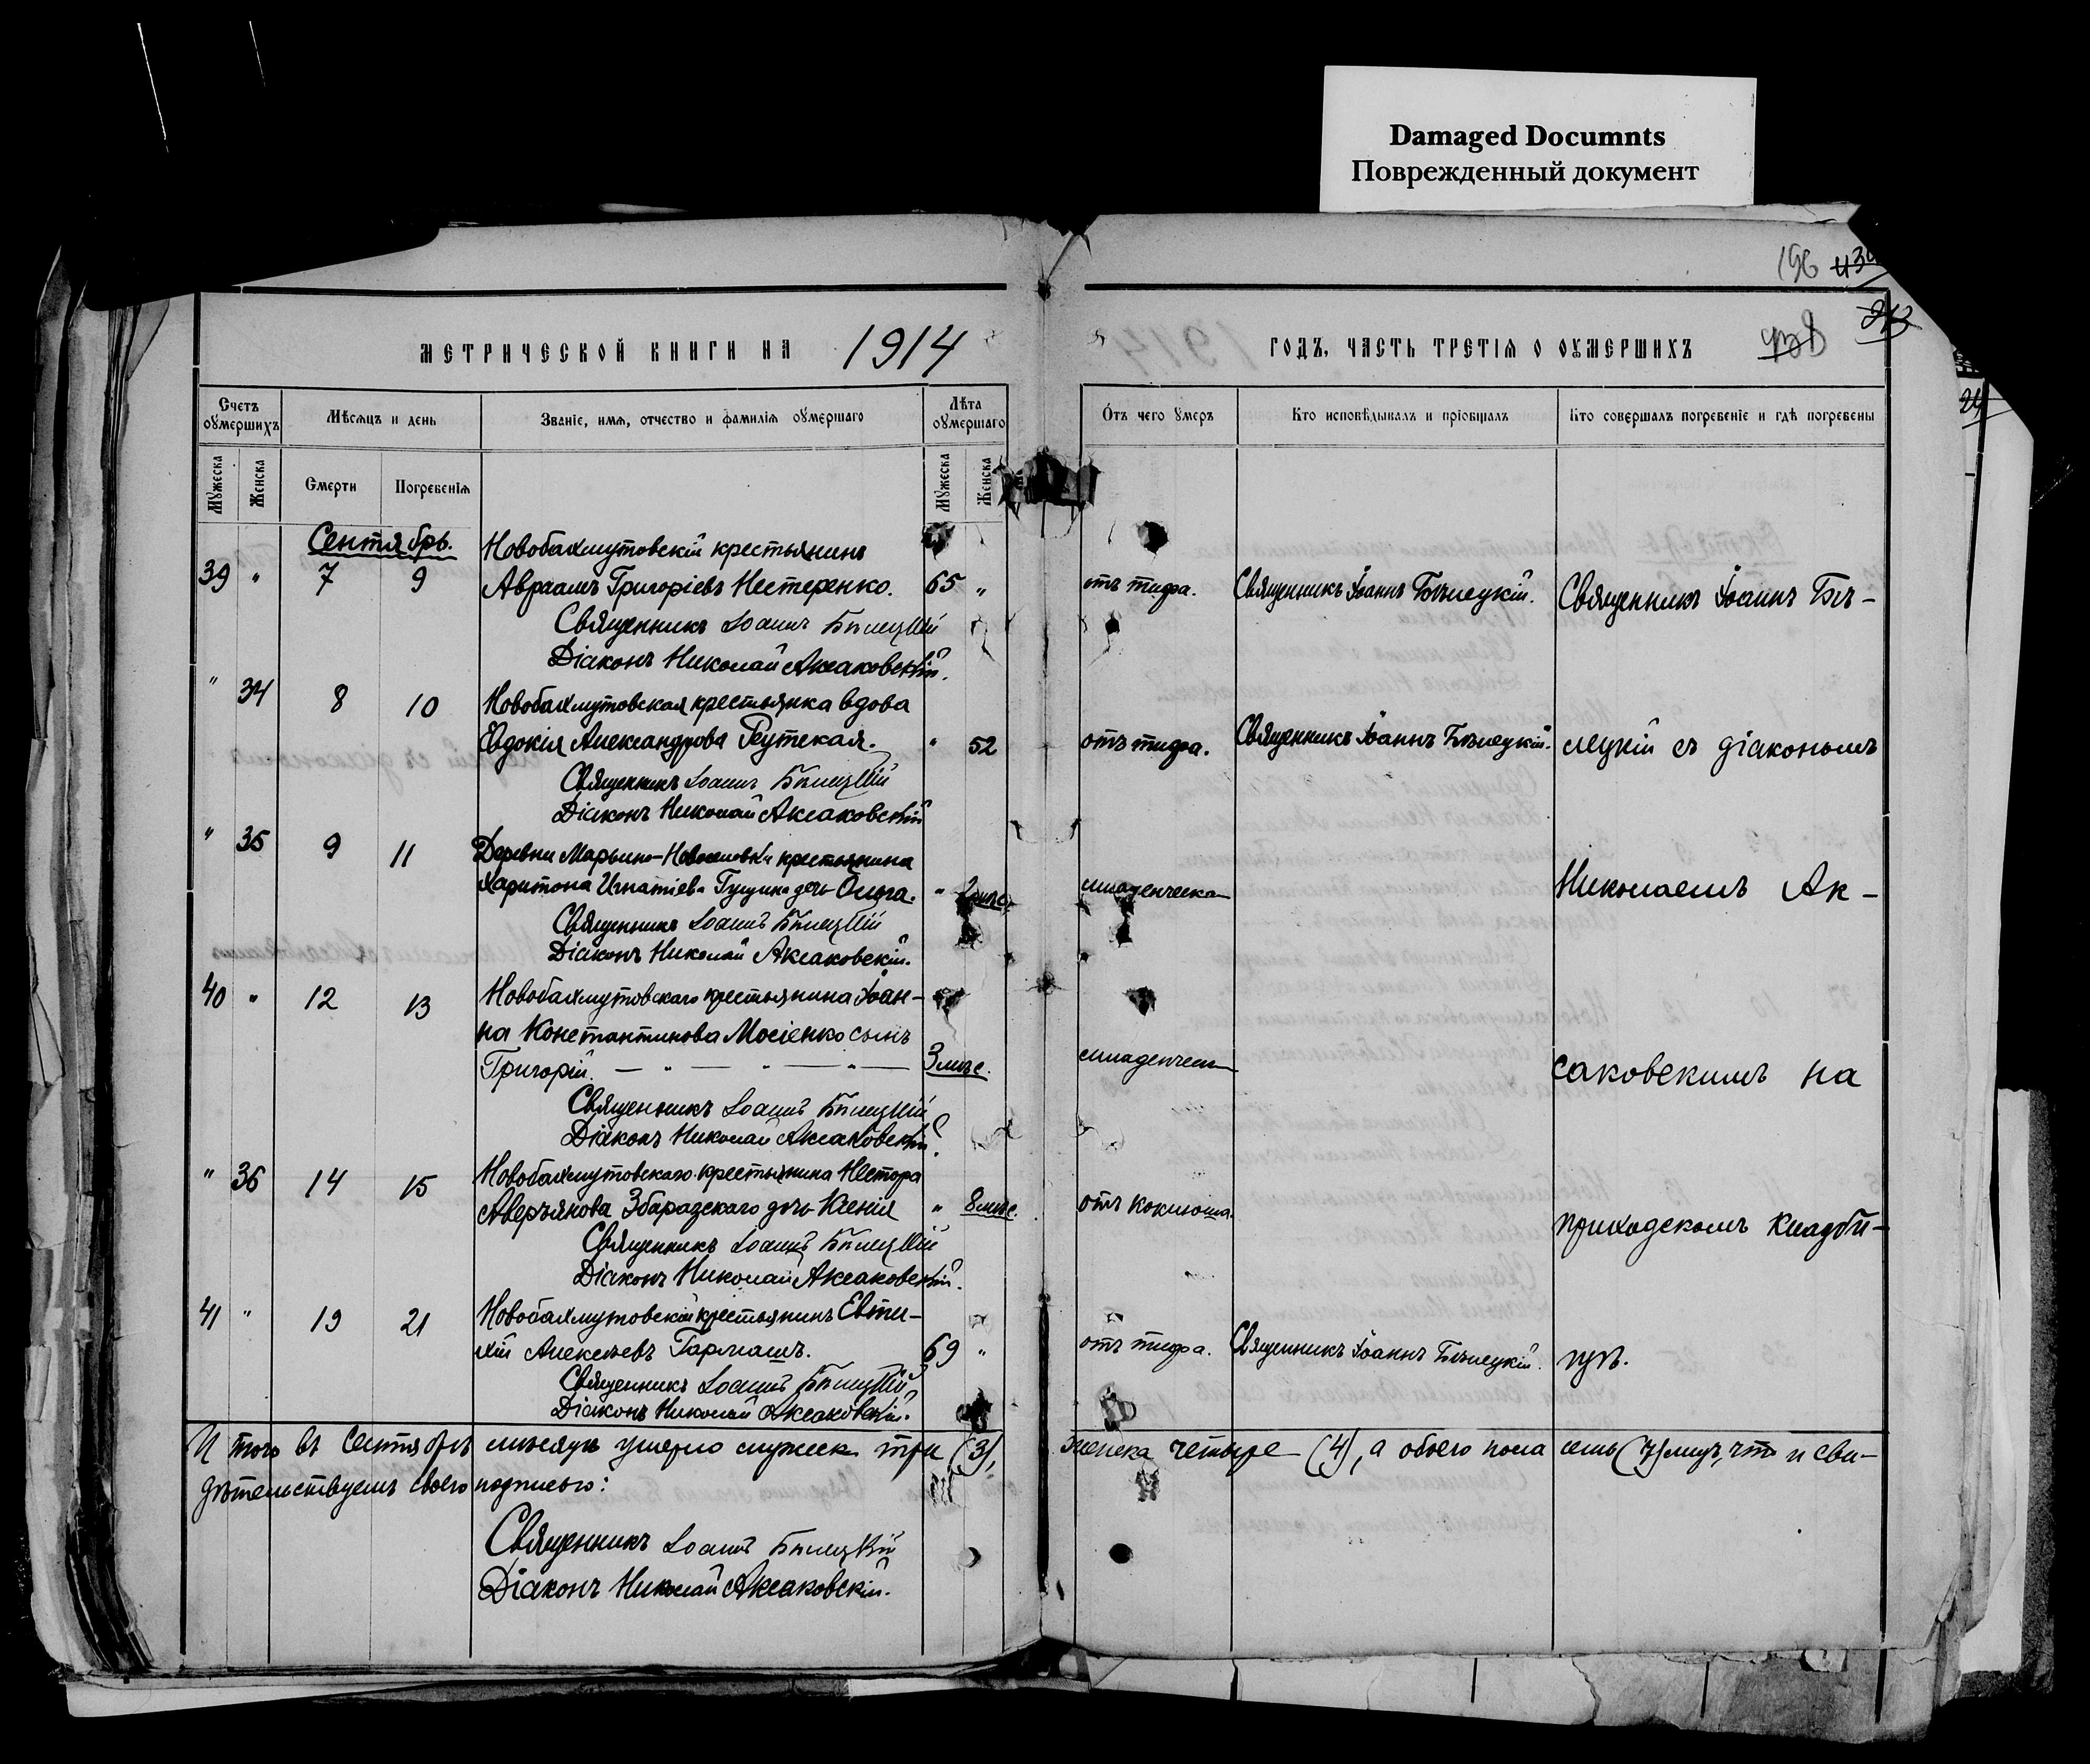 Damaged Documnts
Поврежденный документ
196
МЕТРИЧЕСКОЙ КНИГИ НА 1914 ГОДЪ, ЧАСТЬ ТРЕТІЯ О ОУМЕРШИХЪ
Счетъ оумершихъ
Мѣсяцъ и день
Званіе, имя, отчество и фамилія оумершаго
Лѣта оумершаго
Отъ чего умеръ
Кто исповѣдывалъ и пріобщалъ
Кто совершалъ погребеніе и гдѣ погребены
Мужеска Женска Смерти Погребенія Мужеска Женска
Сентябрь. Новобахмутовскій крестьянинъ
39 " 7 9 Авраамъ Григоріевъ Нестеренко. 65 " отъ тифа. Священникъ Іоаннъ Бѣлецкій. Священникъ Іоаннъ Бѣ-
Священникъ Іоаннъ Бѣлецкій
Діаконъ Николай Аксаковскій.
" 34 8 10 Новобахмутовская крестьянка вдова
Евдокія Александрова Реутская. " 52 отъ тифа. Священникъ Іоаннъ Бѣлецкій. лецкій съ діакономъ
Священникъ Іоаннъ Бѣлецкій
Діаконъ Николай Аксаковскій
" 35 9 11 Деревни Марьино-Новоселовки крестьянина
Харитона Игнатіева Гущина дочь Ольга. " мѣс. младенческа Николаемъ Ак-
Священникъ Іоаннъ Бѣлецкій
Діаконъ Николай Аксаковскій.
40 " 12 13 Новобахмутовскаго крестьянина Іоан-
на Константинова Мосіенко сынъ
Григорій. — " — " — " — 3 мѣс. младенческ саковскимъ на
Священникъ Іоаннъ Бѣлецкій
Діаконъ Николай Аксаковскій.
" 36 14 15 Новобахмутовскаго крестьянина Нестора
Аверьянова Збаразскаго дочь Ксенія " 8 мѣс. отъ коклюша. приходскомъ кладби-
Священникъ Іоаннъ Бѣлецкій
Діаконъ Николай Аксаковскій.
41 " 19 21 Новобахмутовскій крестьянинъ Евти-
хій Алексѣевъ Гармашъ. 69 " отъ тифа. Священникъ Іоаннъ Бѣлецкій. щѣ.
Священникъ Іоаннъ Бѣлецкій
Діаконъ Николай Аксаковскій.
Итого въ Сентябрѣ мѣсяцѣ умерло мужеск три (3), женска четыре (4), а обоего пола семь (7) лицъ, что и сви-
дѣтельствуемъ своею подписью:
Священникъ Іоаннъ Бѣлецкій
Діаконъ Николай Аксаковскій.